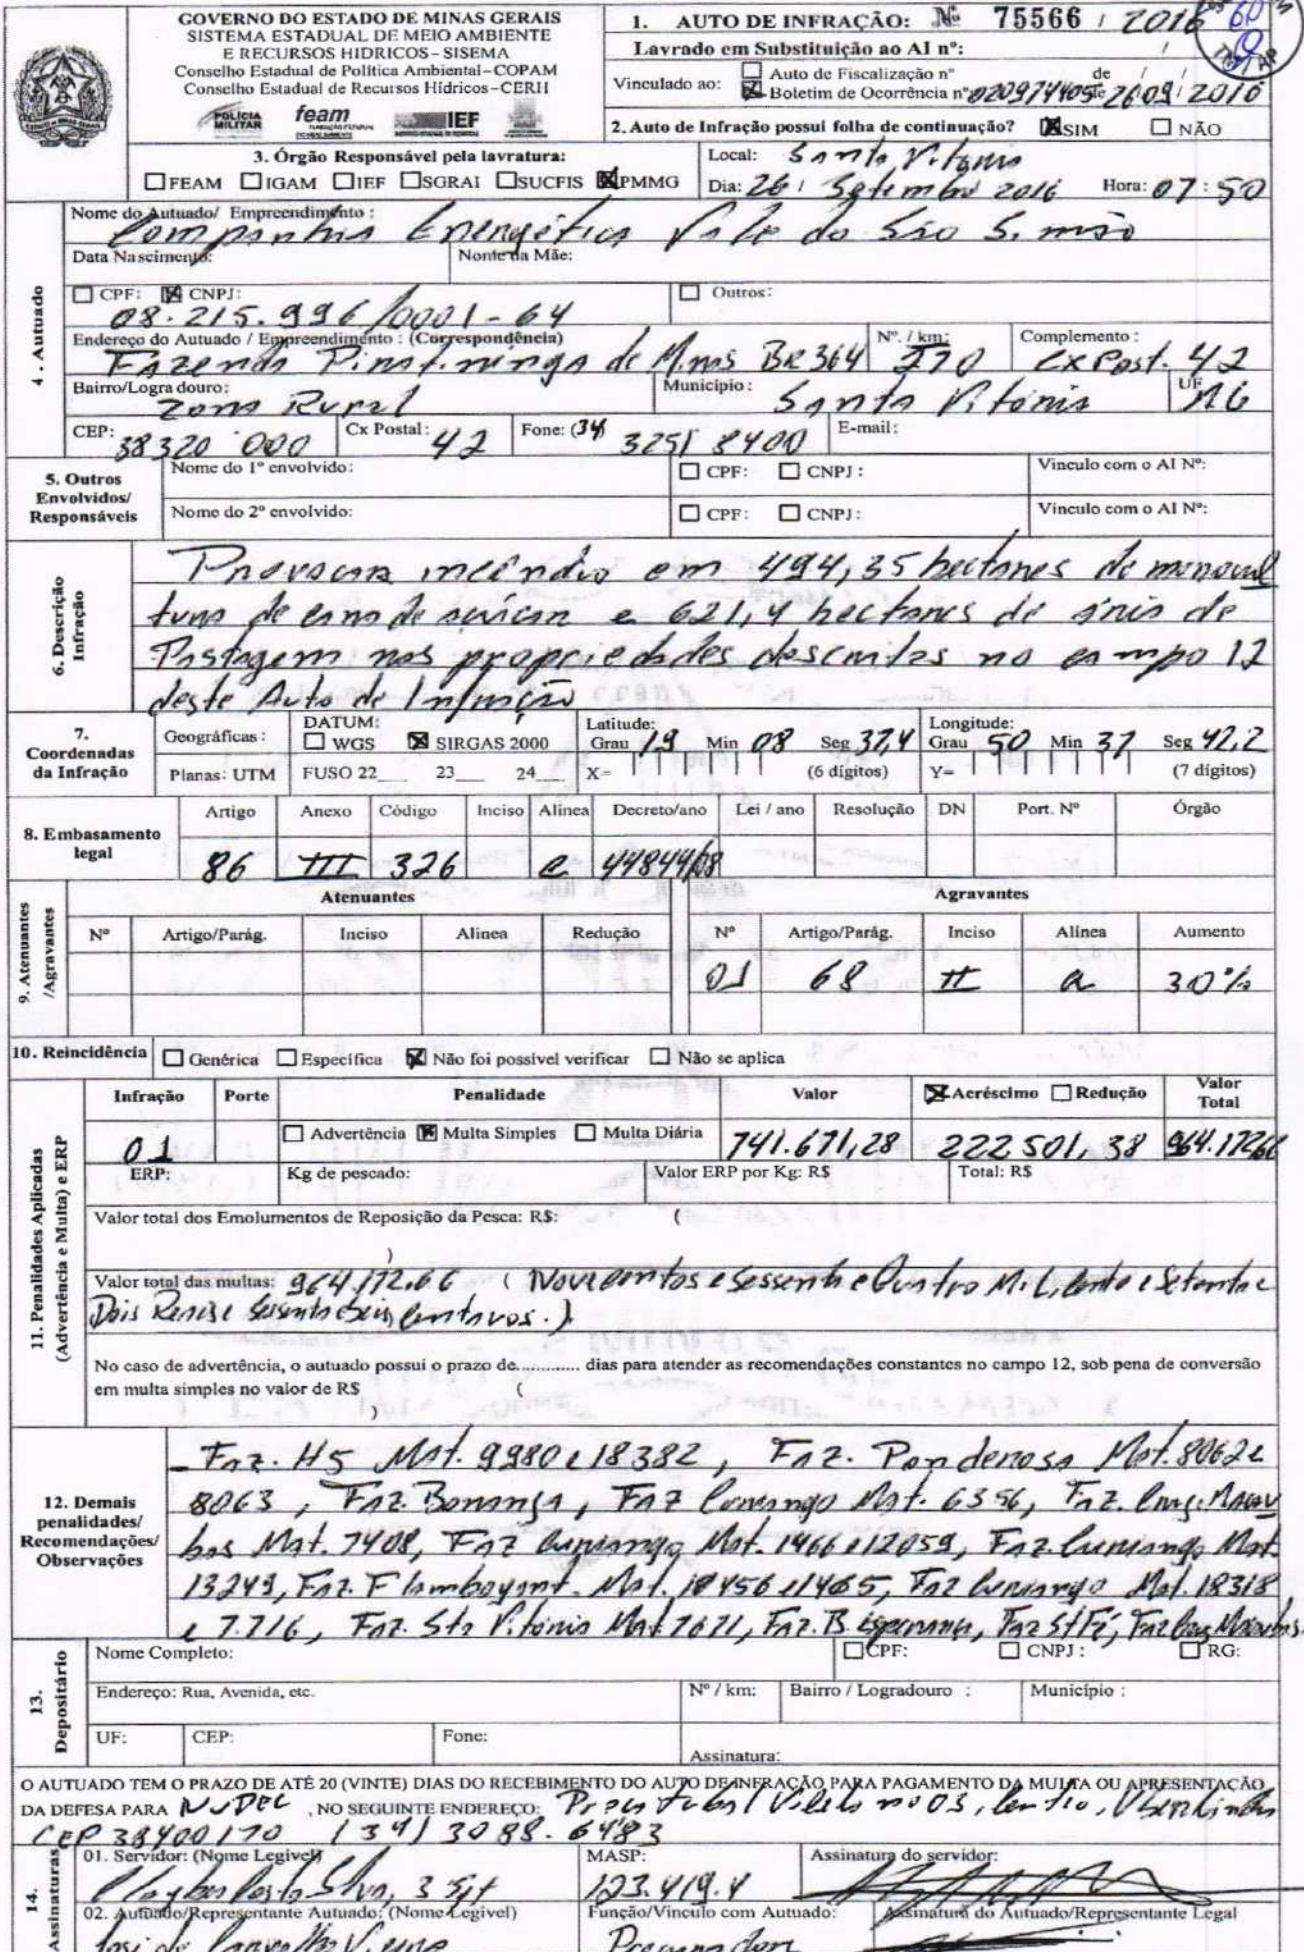 GOVERNO DO ESTADO DE MINAS GERAIS
SISTEMA ESTADUAL DE MEIO AMBIENTE
E RECURSOS HIDRICOS – SISEMA
Conselho Estadual de Política Ambiental – COPAM
Conselho Estadual de Recursos Hídricos – CERH
POLÍCIA MILITAR feam IEF
1. AUTO DE INFRAÇÃO: Nº 75566 / 2016
Lavrado em Substituição ao AI nº: /
Vinculado ao: Auto de Fiscalização nº de / /
Boletim de Ocorrência nº 020974405 de 26/09/2016
2. Auto de Infração possui folha de continuação? SIM NÃO
60
3. Órgão Responsável pela lavratura:
FEAM IGAM IEF SGRAI SUCFIS PMMG
Local: Santa Vitoria
Dia: 26 / Setembro 2016 Hora: 07:50
4. Autuado
Nome do Autuado/ Empreendimento :
Companhia Energética Vale do São Simão
Data Nascimento: Nome da Mãe:
CPF: CNPJ: Outros:
08.215.996/0001-64
Endereço do Autuado / Empreendimento : (Correspondência) Nº. / km: Complemento :
Fazenda Piratininga de Minas BR 364 270 Cx Post. 42
Bairro/Logradouro: Município: UF
Zona Rural Santa Vitória MG
CEP: 38320 000 Cx Postal: 42 Fone: (34) 3251 8400 E-mail:
5. Outros Envolvidos/ Responsáveis
Nome do 1º envolvido: CPF: CNPJ: Vinculo com o AI Nº:
Nome do 2º envolvido: CPF: CNPJ: Vinculo com o AI Nº:
6. Descrição Infração
Provocar incêndio em 494,35 hectares de monocul
tura de cana de açúcar e 621,4 hectares de área de
Pastagem nas propriedades descritas no campo 12
deste Auto de Infração
7. Coordenadas da Infração
Geográficas: DATUM: WGS SIRGAS 2000 Latitude: Grau 19 Min 08 Seg 37,4 Longitude: Grau 50 Min 37 Seg 42,2
Planas: UTM FUSO 22 23 24 X= (6 dígitos) Y= (7 dígitos)
8. Embasamento legal
Artigo Anexo Código Inciso Alínea Decreto/ano Lei / ano Resolução DN Port. Nº Órgão
86 III 326 e 44844/08
9. Atenuantes /Agravantes
Atenuantes Agravantes
Nº Artigo/Parág. Inciso Alínea Redução Nº Artigo/Parág. Inciso Alínea Aumento
01 68 II a 30%
10. Reincidência Genérica Específica Não foi possível verificar Não se aplica
11. Penalidades Aplicadas (Advertência e Multa) e ERP
Infração Porte Penalidade Valor Acréscimo Redução Valor Total
01 Advertência Multa Simples Multa Diária 741.671,28 222 501,38 964.172,66
ERP: Kg de pescado: Valor ERP por Kg: R$ Total: R$
Valor total dos Emolumentos de Reposição da Pesca: R$: (
)
Valor total das multas: 964.172.66 (Novecentos e Sessenta e Quatro Mil, cento e Setenta e
Dois Reais e Sessenta e Seis Centavos.)
No caso de advertência, o autuado possui o prazo de............ dias para atender as recomendações constantes no campo 12, sob pena de conversão
em multa simples no valor de R$ (
)
12. Demais penalidades/ Recomendações/ Observações
- Faz. H5 Mat. 9980 e 18382, Faz. Ponderosa Mat. 8062 e
8063, Faz. Bonança, Faz Mat. 6356, Faz.
Mat. 7408, Faz Mat. 1466 e 12059, Faz. Mat.
13249, Faz. Flamboyant. Mat. 18456 e 1465, Faz Mat. 18318
e 7.716, Faz. Sta Vitória Mat. 7671, Faz. B. Esperança, Faz Sta Fé, Faz
13. Depositário
Nome Completo: CPF: CNPJ: RG:
Endereço: Rua, Avenida, etc. Nº / km: Bairro / Logradouro : Município :
UF: CEP: Fone: Assinatura:
O AUTUADO TEM O PRAZO DE ATÉ 20 (VINTE) DIAS DO RECEBIMENTO DO AUTO DE INFRAÇÃO PARA PAGAMENTO DA MULTA OU APRESENTAÇÃO
DA DEFESA PARA NUDEC , NO SEGUINTE ENDEREÇO: Praça Tubal Vilela nº 03, Centro, Uberlândia
CEP 38400170 (34) 3088.6483
14. Assinaturas
01. Servidor: (Nome Legível) MASP: Assinatura do servidor:
Silva, 3 Sgt 123.419.4
02. Autuado/Representante Autuado: (Nome Legível) Função/Vinculo com Autuado: Assinatura do Autuado/Representante Legal
José de Carvalho Procurador